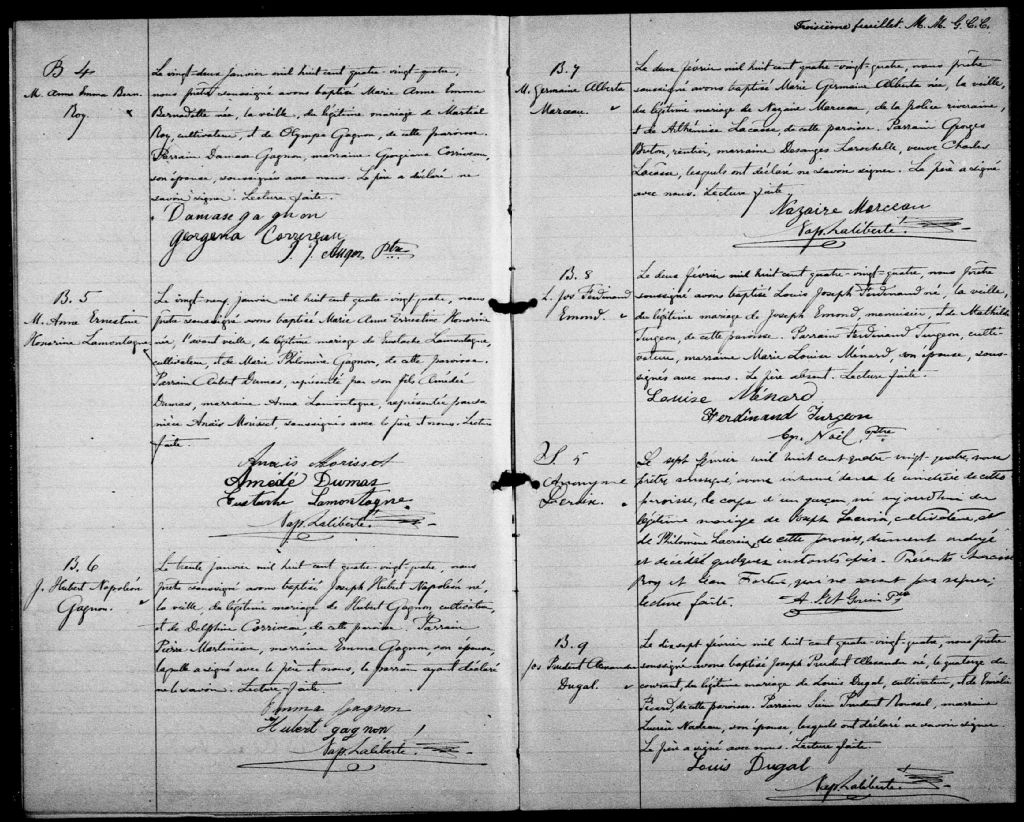 B 4
M. Anne Emma Bern.
Roy.
Le vingt-deux janvier mil huit cent quatre-vingt-quatre,
nous prêtre soussigné avons baptisé Marie Anne Emma
Bernadette née, la veille, du légitime mariage de Martial
Roy, cultivateur, et de Olympe Gagnon, de cette paroisse.
Parrain Damase Gagnon, marraine Georgiana Corriveau,
son épouse, soussignés avec nous. Le père a déclaré ne
savoir signer. Lecture faite.
Damase gagnon
Georgena Correveau
Ptre
B. 5
M. Anna Ernestine
Honorine Lamontagne
Le vingt-neuf janvier mil huit cent quatre-vingt-quatre, nous
prêtre soussigné avons baptisé Marie Anne Ernestine Honorine
née, l'avant veille, du légitime mariage de Eustache Lamontagne,
cultivateur, et de Marie Philomène Gagnon, de cette paroisse.
Parrain Dumas, représenté par son fils Amédée
Dumas, marraine Anna Lamontagne, représentée par sa
nièce Anaïs Morisset, soussignés avec le père et nous. Lecture
faite.
Anaïs Morisset
Amedé Dumas
Eustache Lamontagne
Nap. Laliberté
B. 6
J. Hubert Napoléon
Gagnon.
Le trente janvier mil huit cent quatre-vingt-quatre, nous
prêtre soussigné avons baptisé Joseph Hubert Napoléon né,
la veille, du légitime mariage de Hubert Gagnon, cultivateur,
et de Delphine Corriveau, de cette paroisse. Parrain
Pierre Martineau, marraine Emma Gagnon, son épouse,
laquelle a signé avec le père et nous, le parrain ayant déclaré
ne le savoir. Lecture faite.
Emma Gagnon
Hubert gagnon
Nap. Laliberté
Troisième feuillet. M. M. G. C. C.
B. 7
M. Germaine Alberta
Marceau.
Le deux février mil huit cent quatre-vingt-quatre, nous prêtre
soussigné avons baptisé Marie Germaine Alberta née, la veille,
du légitime mariage de Nazaire Marceau, de la police riveraine,
et de Arthémise Lacasse, de cette paroisse. Parrain Georges
Breton, rentier, marraine Desanges Larochelle, veuve Charles
Lacasse, lesquels ont déclaré ne savoir signer. Le père a signé
avec nous. Lecture faite
Nazaire Marceau
Nap. Laliberté
B. 8
L. Jos Ferdinand
Emond.
Le deux février mil huit cent quatre-vingt-quatre, nous prêtre
soussigné avons baptisé Louis Joseph Ferdinand né, la veille,
du légitime mariage de Joseph Emond, menuisier, et de Mathilde
Turgeon, de cette paroisse. Parrain Ferdinand Turgeon, culti-
vateur, marraine Marie Louise Ménard, son épouse, sous-
signés avec nous. Le père absent. Lecture faite
Louise Ménard
Ferdinand Turgeon
Noël Ptre
S. 5
Anonyme
Lacroix.
Le sept février mil huit cent quatre-vingt-quatre, nous
prêtre soussigné, avons inhumé dans le cimetière de cette
paroisse, le corps d'un garçon, né aujourd'hui du
légitime mariage de Joseph Lacroix, cultivateur, et
de Philomène Lacroix, de cette paroisse, dûment ondoyé
et décédé quelques instants après. Présents
Roy et Fortier, qui ne savent pas signer;
lecture faite.
B. 9
Jos Prudent Alexandre
Dugal.
Le dix sept février mil huit cent quatre-vingt-quatre, nous prêtre
soussigné avons baptisé Joseph Prudent Alexandre né, le quatorze du
courant, du légitime mariage de Louis Dugal, cultivateur, et de Emélie
Picard, de cette paroisse. Parrain Prudent Roussel, marraine
Lucrèce Nadeau, son épouse, lesquels ont déclaré ne savoir signer.
Le père a signé avec nous. Lecture faite
Louis Dugal
Nap. Laliberté